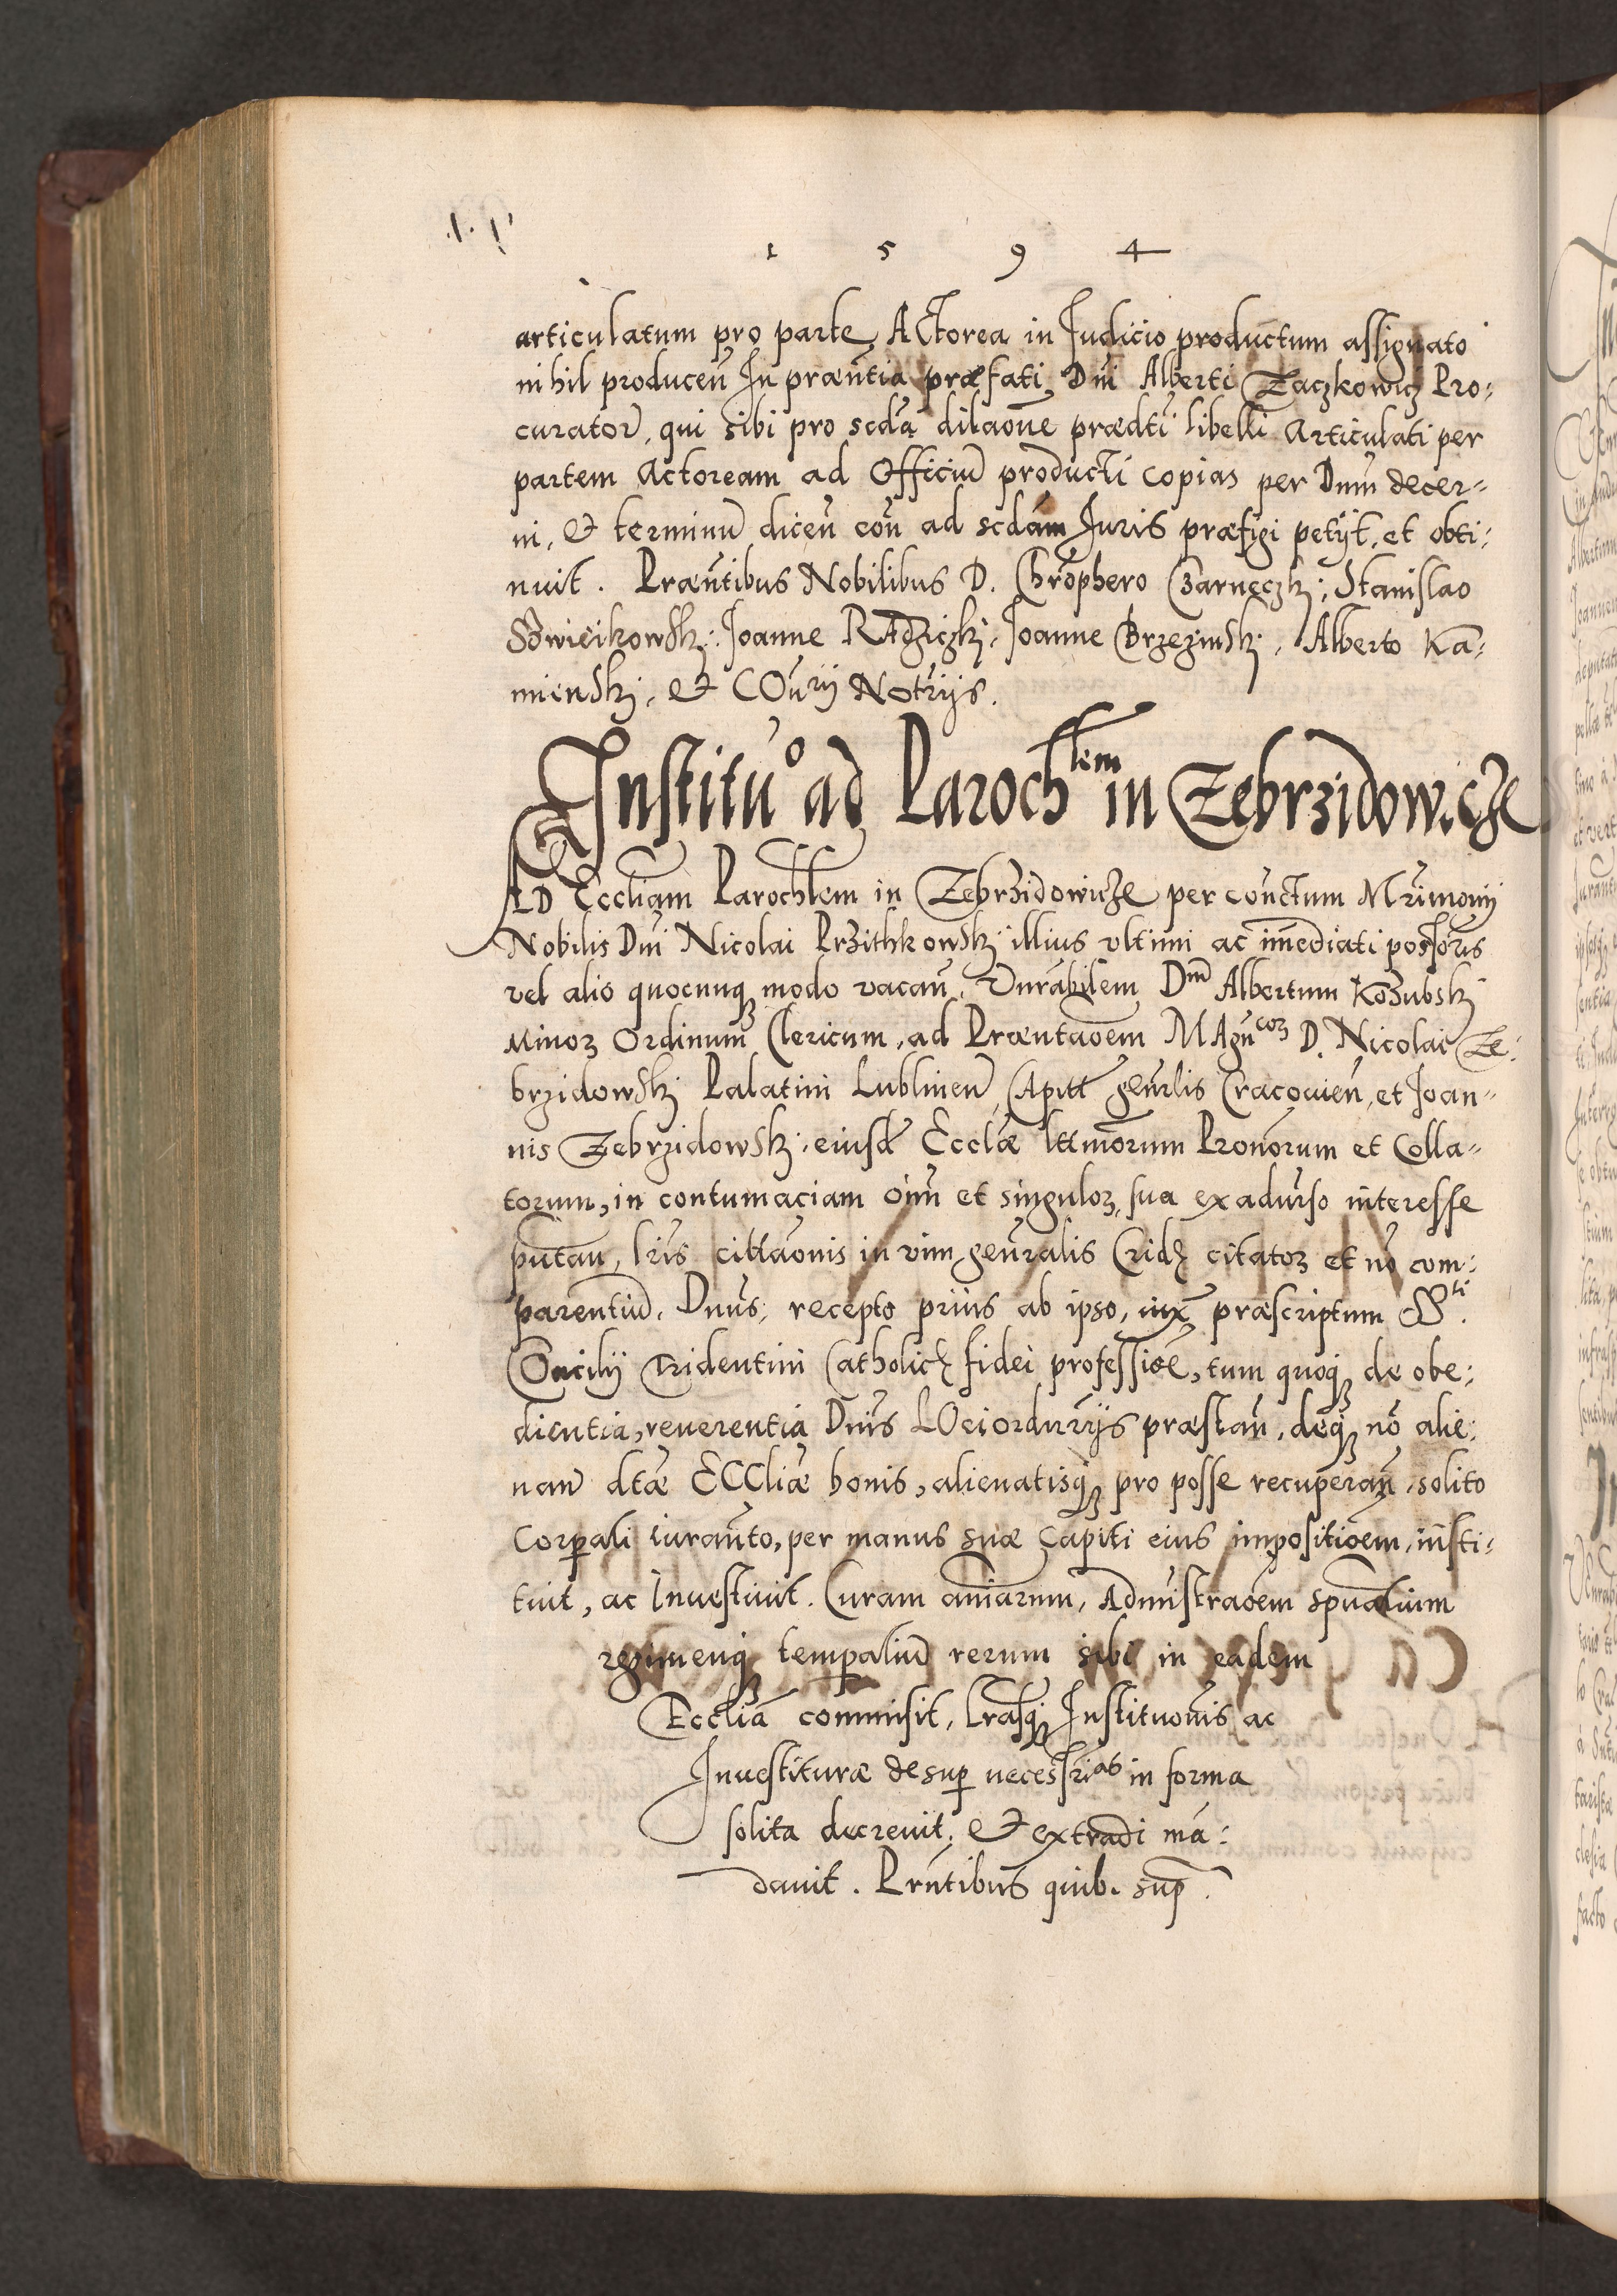 1 5 9 4
articulatum pro parte Actorea in Judicio productum assignato
nihil producen̄ In praen̄tia praefati Dn̄i Alberti Zaczkowicz Pro:
curator̄, qui sibi pro scdā dilaōne praedt̄i libelli Articulati per
partem Actoream ad Officiū producti copias per Dnūm decer=
ni, & terminū dicen̄ eoū ad scdām Juris praefigi petijt, et obti:
nuit. Praen̄tibus Nobilibus D. Chrōphero Czarneczkj; Stanislao
Szwieikowskj: Joanne Radziczkj, Joanne Brzezinskj, Alberto Ka=
mienskj, & COn̄rij Notr̄ijs.
Institu° ad Paroch lem in Zebrzidowicze
AD Eccliam Parochlem in Zebrzidowicze per con̄ctum Mr̄imonij
Nobilis Dn̄i Nicolai Przithkowskj illius vltimi ac im̄ediati possōris
vel alio quocunq̃ modo vacan̄, Vnrābilem Dnm̄ Albertum Kozubskj
Minoꝝ Ordinum Clericum, ad Praentaōem MAgn̄coꝝ D. Nicolai Ze:
brzidowskj Palatini Lublinen̄ CApitt̄ gen̄rlis Cracouien̄, et Joan=
nis Zebrzidowskj, eiusd̄ Ecclāe lt̄timōrum Pronōrum et Colla=
torum, in contumaciam oīm̄ et singuloꝝ, sua ex adūrso interesse
putan̄, lrīs cittaōnis in vim gen̄ralis Cridę citatoꝝ et nō com:
parentiū. Dnūs, recepto priūs ab ipso, iux̄ praescriptum S. ti
COncilij Tridentini Catholicę fidei professioē, tum quoq̃ de obe:
dientia, reuerentia Dnīs LOciordnr̄ijs praestan̄, deq̃ nō alie:
nan̄ dtāe ECCliāe bonis, alienatisq̃ pro posse recuperan̄, solito
Corp̄ali iuran̄to, per manus suae Capiti eius impositioēm, insti:
tuit, ac Inuestiuit. Curam aniārum, Adm̄istraōem spūalium
regimenq̃ temp̄aliū rerum sibi in eadem
Eccliā commisit, Lrāsq̃ Instituoīnis ac
Inuestiturae desup̄ necessrias in forma
solita decreuit, & extradi mā:
dauit. Prn̄tibus quib. sup̄.